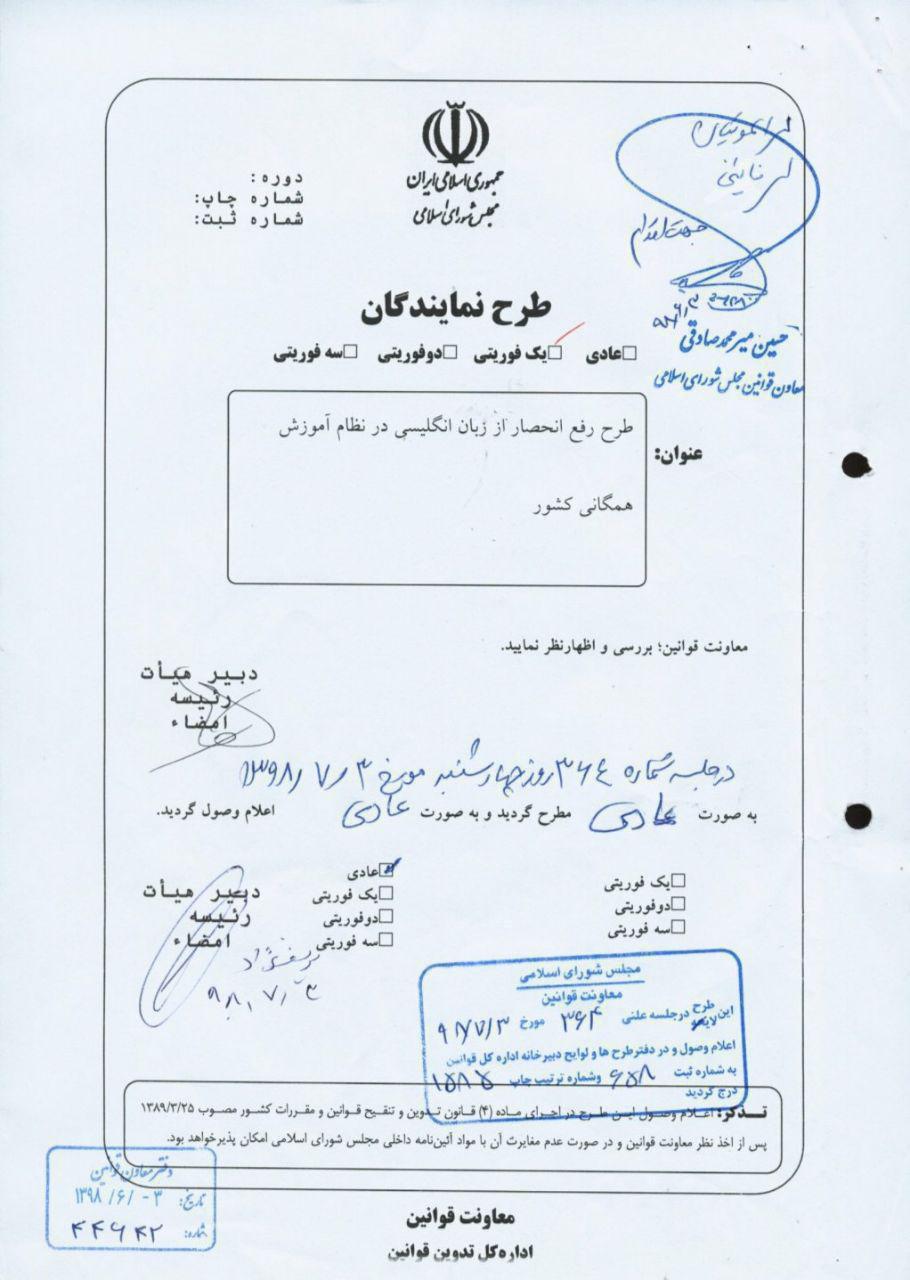 جمهوری اسلامی ایران
مجلس شورای اسلامی
دوره:
شماره چاپ:
شماره ثبت:
جهت اقدام
حسین میرمحمدصادقی
معاون قوانین مجلس شورای اسلامی
طرح نمایندگان
□عادی □یک فوریتی □دوفوریتی □سه فوریتی
عنوان:
طرح رفع انحصار از زبان انگلیسی در نظام آموزش
همگانی کشور
معاونت قوانین؛ بررسی و اظهارنظر نمایید.
دبیر هیأت
رئیسه
امضاء
درجلسه شماره ۳۶٤ روز چهارشنبه مورخ ۱۳۹۸/۷/۳
به صورت عادی مطرح گردید و به صورت عادی اعلام وصول گردید.
□یک فوریتی
□دوفوریتی
□سه فوریتی
☑عادی
□یک فوریتی
□دوفوریتی
□سه فوریتی
دبیر هیأت
رئیسه
امضاء
۹۸/۷/۳
مجلس شورای اسلامی
معاونت قوانین
این طرح لایحه درجلسه علنی ۳۶۴ مورخ ۹۸/۷/۳
اعلام وصول و در دفترطرح ها و لوایح دبیرخانه اداره کل قوانین
به شماره ثبت ۶۵۸ وشماره ترتیب چاپ ۱۵۸۵
درج گردید
تـذکر: اعـلام وصـول ایـن طـرح در اجرای مـاده (۴) قـانون تـدوین و تنقیح قـوانین و مقـررات کشـور مصـوب ۱۳۸۹/۳/۲۵
پس از اخذ نظر معاونت قوانین و در صورت عدم مغایرت آن با مواد آئین‌نامه داخلی مجلس شورای اسلامی امکان پذیرخواهد بود.
دفتر معاون قوانین
تاریخ: ۱۳۹۸/۶/-۳
شماره: ۴۴۶۴۲
معاونت قوانین
اداره‌کل تدوین قوانین